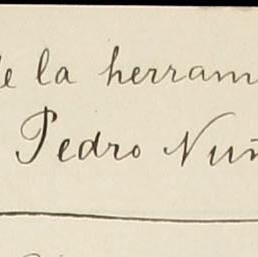 de la herram
Pedro Nuñ